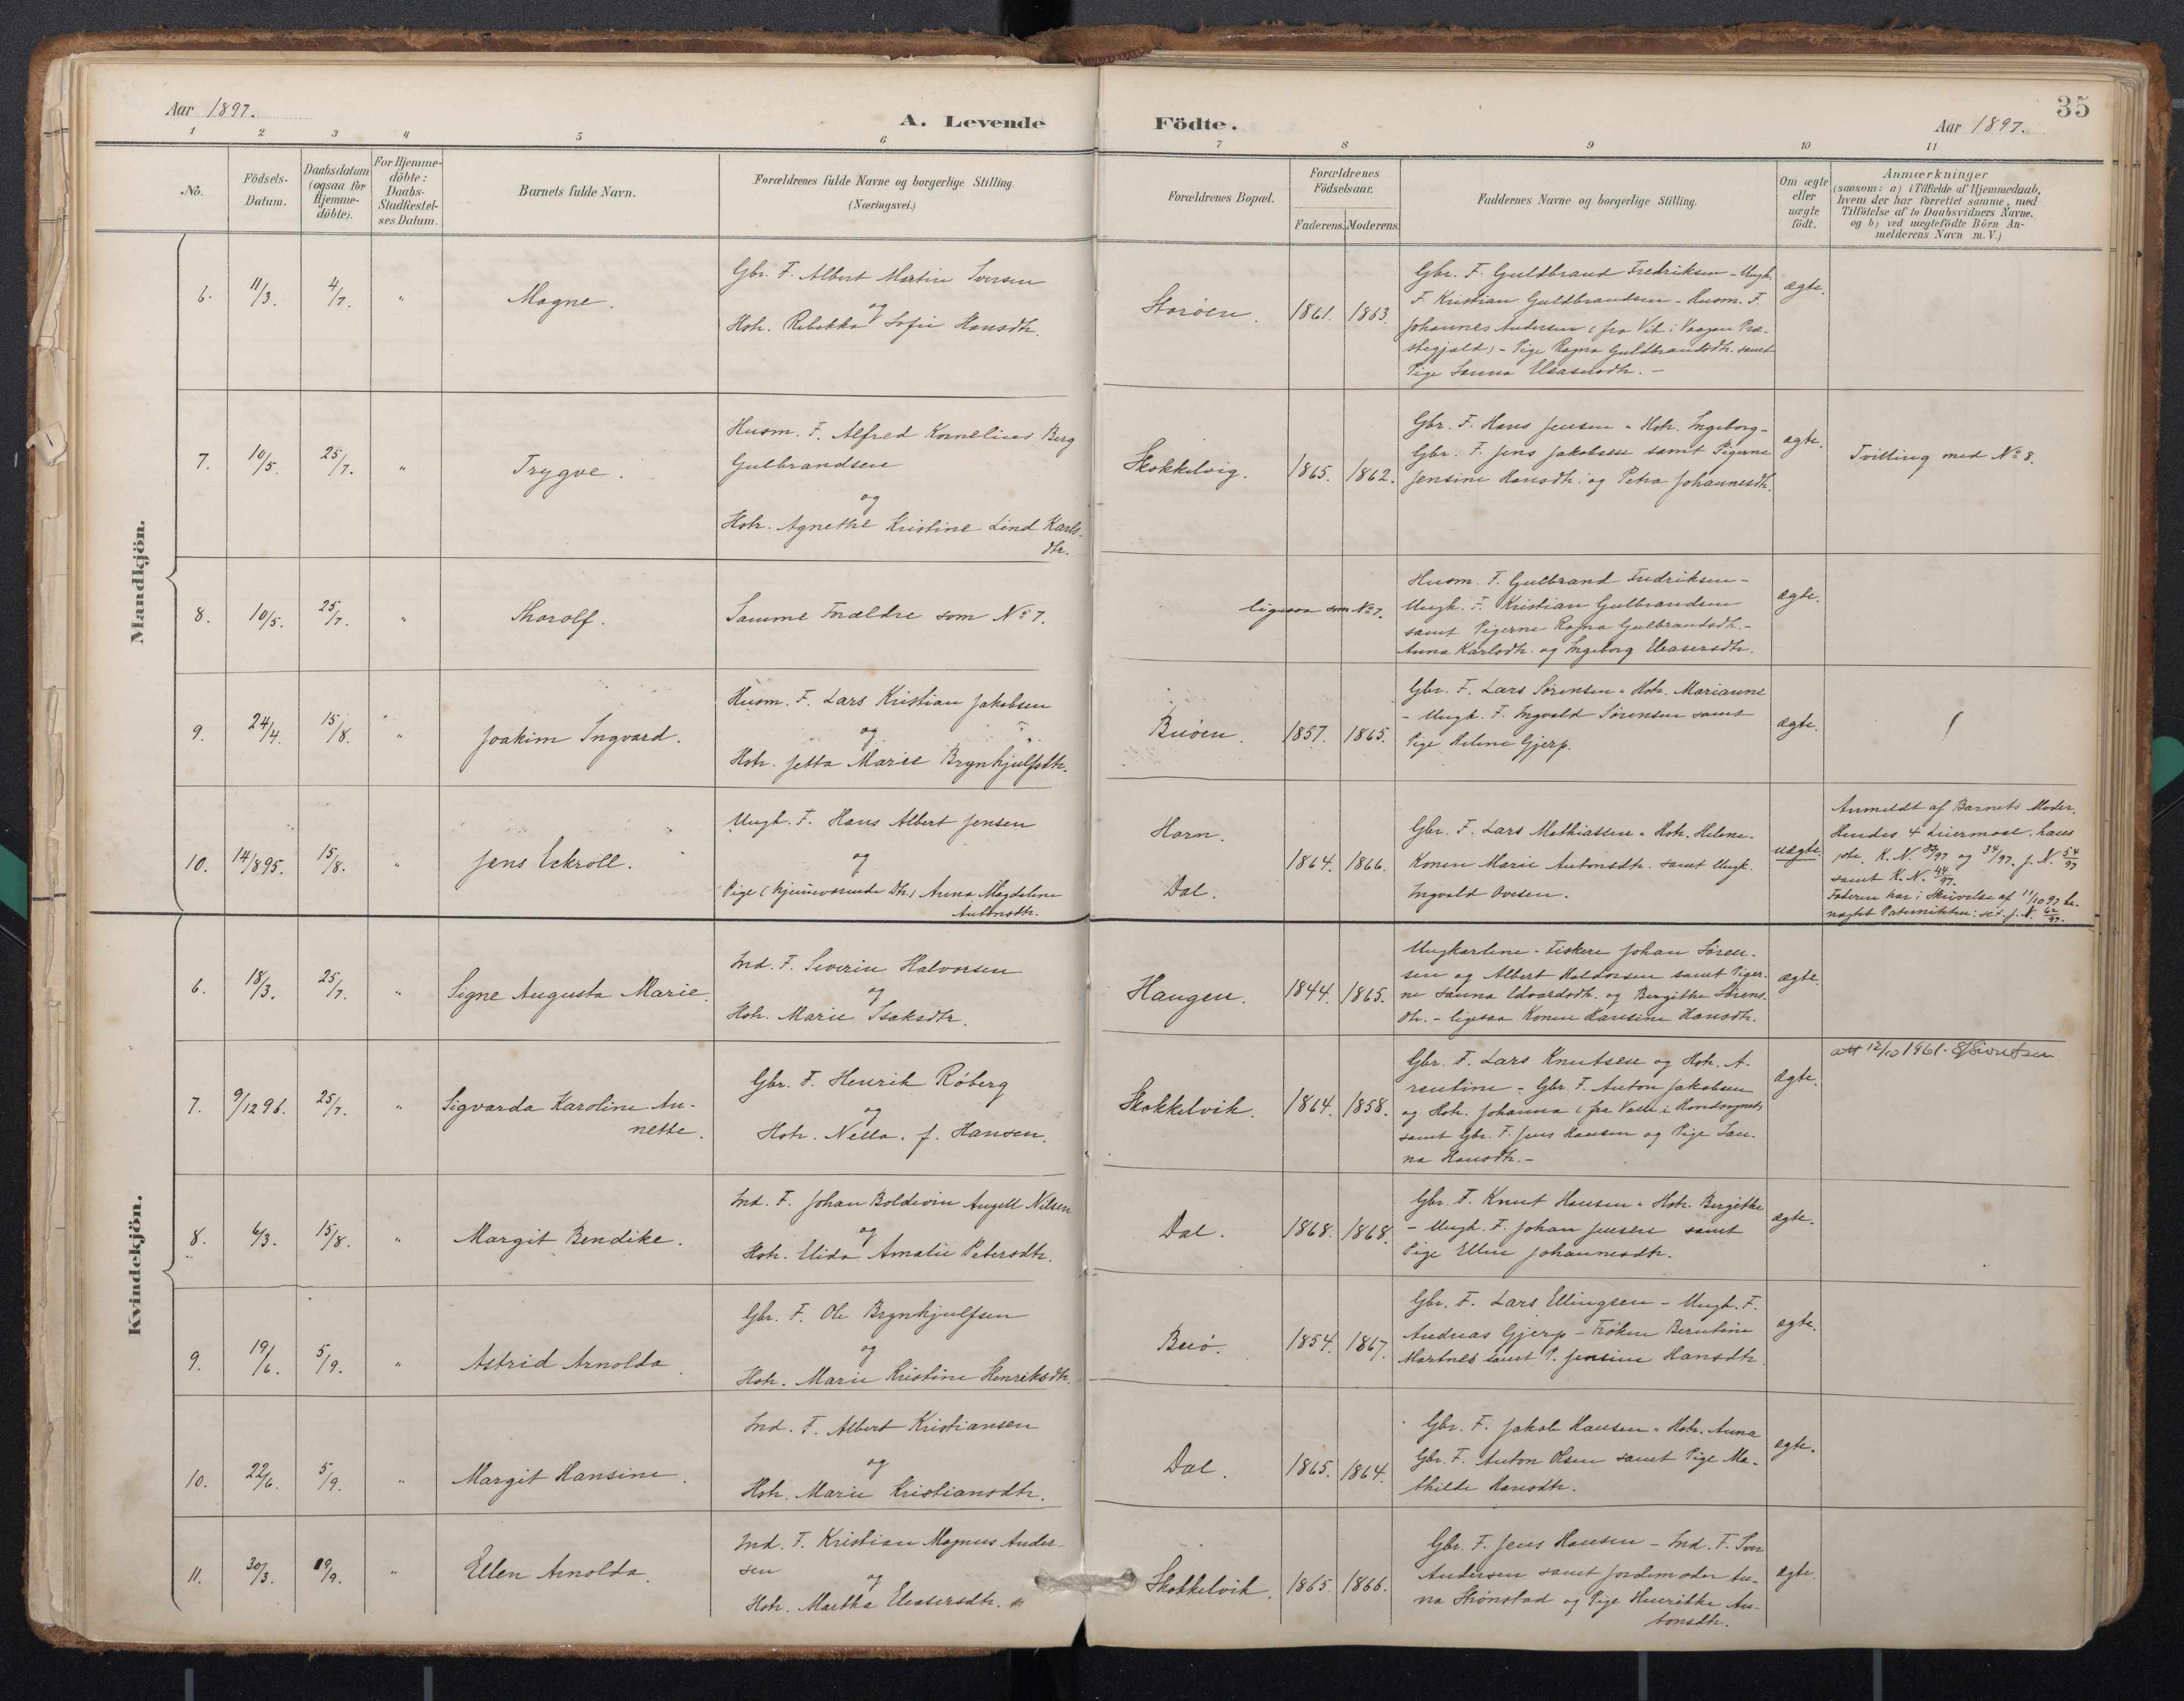 Aar 1897.
A. Levende Födte.
Aar 1897.
35
1 2 3 4 5 6 7 8 9 10 11
No.
Födsels-Datum.
Daabsdatum (ogsaa for Hjemme-döbte).
For Hjemme-döbte: Daabs-Stadfæstel-ses Datum.
Barnets fulde Navn.
Forældrenes fulde Navne og borgerlige Stilling.
(Næringsvei.)
Forældrenes Bopæl.
Forældrenes Födselsaar.
Faderens. Moderens.
Faddernes Navne og borgerlige Stilling.
Om ægte eller uægte födt.
Anmærkninger
(saasom: a) i Tilfælde af Hjemmedaab,
hvem der har forrettet samme, med
Tilföielse af to Daabsvidners Navne.
og b) ved uægtefödte Börn An-
melderens Navn m. V.)
Mandkjön.
6. 11/3. 4/7. " Magne.
Gbr. F. Albert Martin Iversen
og
Hstr. Rebekka Sofie Hansdtr.
Storöen. 1861. 1863.
Gbr. F. Guldbrand Fredriksen - Ungk.
F. Kristian Guldbrandsen - Husm. F.
Johannes Andersen (fra Vik i Vaagan Præ-
stegjæld) - Pige Ragna Guldbrandsdtr. samt
Pige Sanna Eleasersdtr. -
ægte.
7. 10/5. 25/7. " Trygve.
Husm. F. Alfred Kornelius Berg
Gulbrandsen
og
Hstr. Agnethe Kristine Lind Karls-
dtr.
Skokkelvig. 1865. 1862.
Gbr. F. Hans Jensen " Hstr. Ingeborg -
Gbr. F. Jens Jakobsen samt Pigerne
Jensine Hansdtr. og Petra Johannesdtr.
ægte.
Tvilling med No 8.
8. 10/5. 25/7. " Thorolf.
Samme Forældre som No 7.
ligesaa som No 7.
Husm. F. Gulbrand Fredriksen -
Ungk. F. Kristian Gulbrandsen
samt Pigerne Ragna Gulbrandsdtr. -
Anna Karlsdtr. og Ingeborg Eleasersdtr.
ægte.
9. 24/4. 15/8. " Joakim Ingvard.
Husm. F. Lars Kristian Jakobsen
og
Hstr. Jetta Marie Brynhjulfsdtr.
Buöen. 1857. 1865.
Gbr. F. Lars Sörensen " Hstr. Marianne
- Ungk. F. Ingvald Sörensen samt
Pige Helene Gjerp.
ægte.
10. 14/8 95. 15/8. " Jens Eckroll.
Ungk. F. Hans Albert Jensen
og
Pige (hjemmeværende Dtr.) Anna Magdelene
Antonsdtr.
Horn.
Dal.
1864. 1866.
Gbr. F. Lars Mathiassen " Hstr. Helene -
Konen Marie Antonsdtr. samt Ungk.
Ingvald Ovesen.
uægte.
Anmeldt af Barnets Moder.
Hendes 4 Leiermaal. hans
K. N. og 34/97. J. N. 54/97
samt K. N. 44/97.
Faderen har i Skrivelse af 11/10 97 be-
nægtet Paterniteten: J. N. 62/97.
Kvindekjön.
6. 18/3. 25/7. " Signe Augusta Marie.
Ind. F. Severin Halvorsen
og
Hstr. Marie Isaksdtr.
Haugen. 1844. 1865.
Ungkarlene - Fiskere Johan Sören-
sen og Albert Haldorsen samt Piger-
ne Sanna Edvardsdtr. og Bergithe Sörens-
dtr. - ligesaa Konen Hansine Hansdtr.
ægte.
7. 9/12 96. 25/7. " Sigvarda Karoline An-
nette.
Gbr. F. Henrik Röberg
og
Hstr. Nella. f. Hansen.
Skokkelvik. 1864. 1858.
Gbr. F. Lars Knutsen og Hstr. A-
rentine - Gbr. F. Anton Jakobsen
og Hstr. Johanna (fra Valle i Hovedsognet)
samt Gbr. F. Jens Hansen og Pige San-
na Hansdtr. -
ægte.
att 12/10 1961. Sivertsen
8. 6/3. 15/8. " Margit Bendike.
Ind. F. Johan Boldevin Angell Nilsen
og
Hstr. Elida Amalie Petersdtr.
Dal. 1868. 1868.
Gbr. F. Knut Hansen " Hstr. Bergithe
- Ungk. F. Johan Jensen samt
Pige Ellen Johannesdtr.
ægte.
9. 19/6. 5/9. " Astrid Arnolda.
Gbr. F. Ole Brynhjulfsen
og
Hstr. Marie Kristine Henriksdtr.
Buö. 1854. 1867.
Gbr. F. Lars Ellingsen - Ungk. F.
Andreas Gjerp - Fröken Berntine
Martnes samt P. Jensine Hansdtr.
ægte.
10. 22/6. 5/9. " Margit Hansine.
Ind. F. Albert Kristiansen
og
Hstr. Marie Kristiansdtr.
Dal. 1865. 1864.
Gbr. F. Jakob Hansen " Hstr. Anna
Gbr. F. Anton Olsen samt Pige Ma-
thilde Hansdtr.
ægte.
11. 30/3. 19/9. " Ellen Arnolda.
Ind. F. Kristian Magnus Ander-
sen
og
Hstr. Martha Eleasersdtr.
Skokkelvik. 1865. 1866.
Gbr. F. Jens Hansen - Ind. F. Iver
Andersen samt Jordemoder An-
na Strönstad og Pige Henrikke An-
tonsdtr.
ægte.